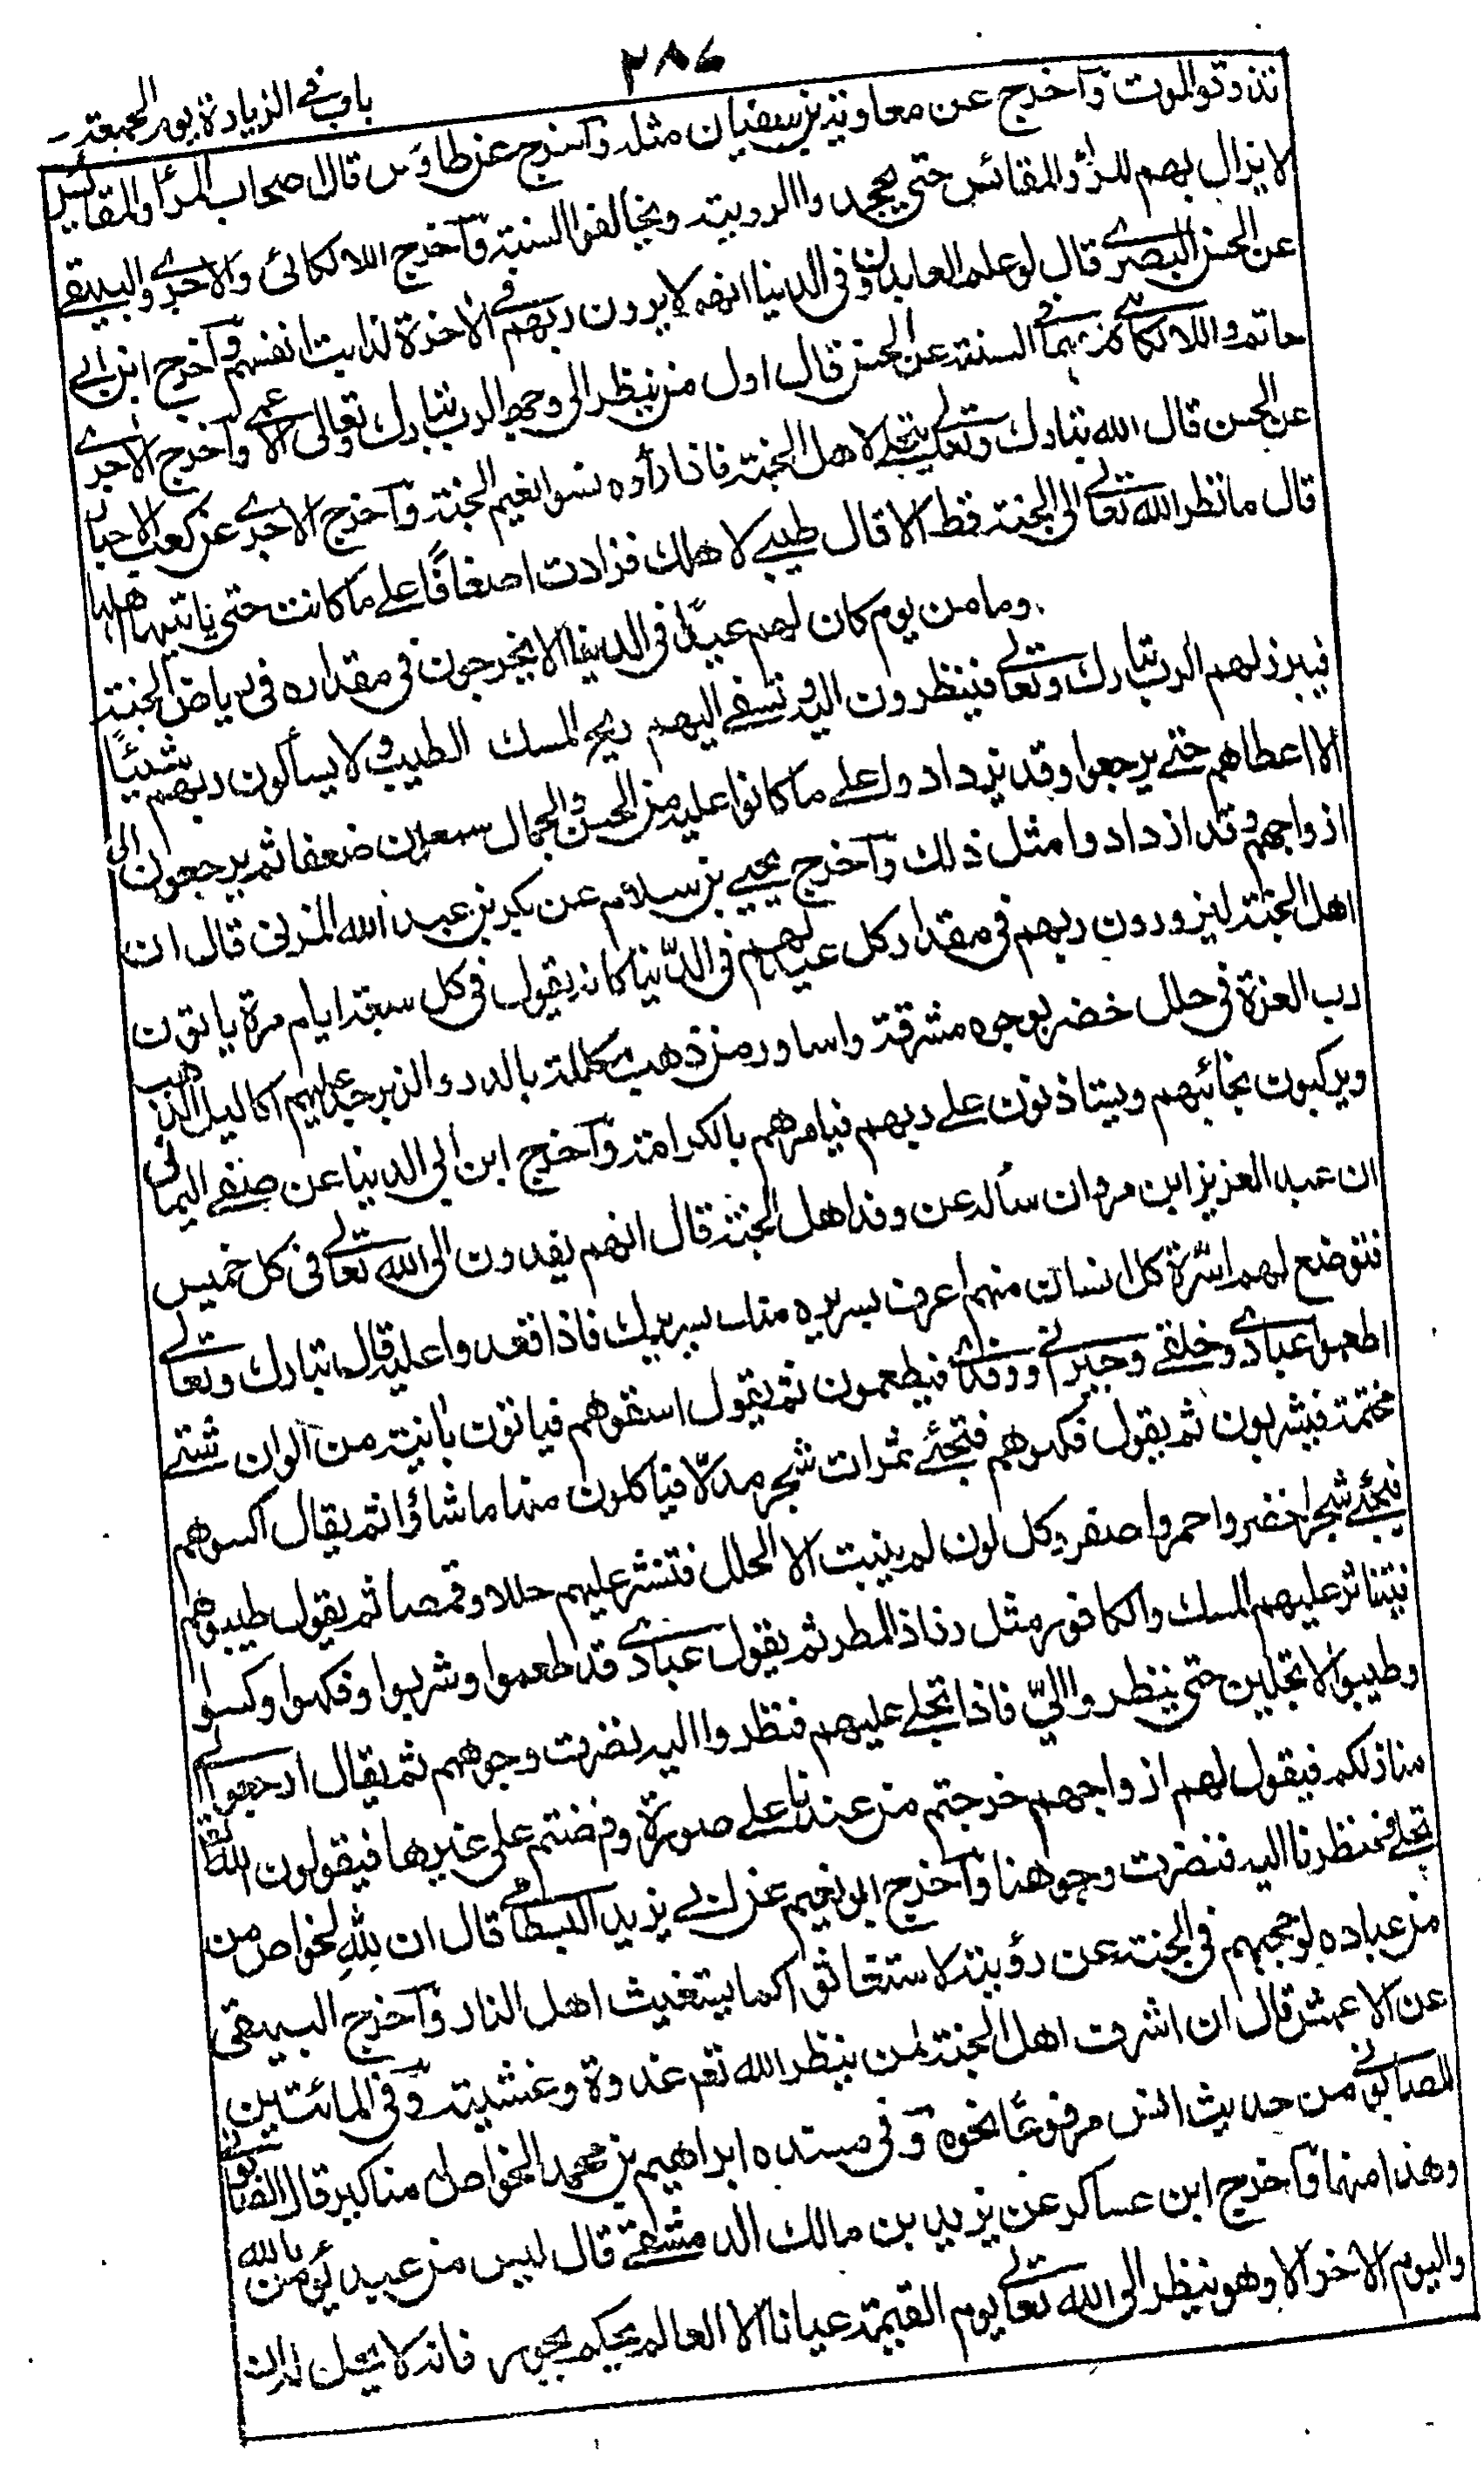 ٢٨٤
باب في الزيادة يوم الجمعة
تذوقوا الموت وآخرج عن معاوية بن سفيان مثله وآخرج عن طاوس قال اصحاب المرأ والمقائيس
لا يزال بهم المرأ والمقائس حتى يجحدوا الروية ويخالفوا السنة وآخرج اللالكائي والآجري والبيهقي
عن الحسن البصري قال لو علم العابدون في الدنيا انهم لا يرون ربهم في الآخرة لذابت انفسهم وآخرج ابن ابي
حاتم واللالكائي السنة عن الحسن قال اول من ينظر الى وجه الرب تبارك وتعالى الاعمى وآخرج الآجري
عن الحسن قال الله تبارك وتعالى يتجلى لاهل الجنة فاذا رأوه نسوا نعيم الجنة وآخرج الآجري عن كعب الاحبار
قال ما نظر الله تعالى الى الجنة قط الا قال طيبي لاهلك فزادت اضعافا على ما كانت حتى ياتيها اهلها
وما من يوم كان لهم عيدا في الدنيا الا يخرجون في مقداره في رياض الجنة
فيبرز لهم الرب تبارك وتعالى فينظرون اليه وتسفى اليهم ريح المسك الطيب ولا يسألون ربهم شيئا
الا اعطاهم حتى يرجعوا وقد يزدادوا على ما كانوا عليه من الحسن والجمال سبعين ضعفا ثم يرجعون الى
ازواجهم وقد ازدادوا مثل ذلك وآخرج يحيى بن سلام عن بكر بن عبد الله المزني قال ان
اهل الجنة ليزورون ربهم في مقدار كل عيد لهم في الدنيا كانه يقول في كل سبعة ايام مرة ياتون
رب العزة في حلل خضر بوجوه مشرقة واساور من ذهب مكللة بالدر والزبرجد عليهم اكاليل الذهب
ويركبون نجائبهم ويستاذنون على ربهم فيامرهم بالكرامة وآخرج ابن ابي الدنيا عن صيفي اليماني
ان عبد العزيز ابن مروان سأله عن وفد اهل الجنة قال انهم يفدون الى الله تعالى في كل خميس
فتوضع لهم اسرة كل انسان منهم اعرف بسريره منك بسريرك فاذا قعدوا عليه قال تبارك وتعالى
اطعموا عبادي وخلقي وجيراني ووفدي فيطعمون ثم يقول اسقوهم فياتون بانية من الوان شتى
مختمة فيشربون ثم يقول فكهوهم فتجئ ثمرات شجر مدلا فياكلون منها ما شاؤا ثم يقال اكسوهم
فيجئ شجر اخضر واحمر واصفر وكل لون لم ينبت الا الحلل فتنشر عليهم حللا وقمصا ثم يقول طيبوهم
فيتناثر عليهم المسك والكافور مثل رذاذ المطر ثم يقول عبادي قد طعموا وشربوا وفكهوا وكسوا
وطيبوا لاتجلين حتى ينظروا الي فاذا تجلى عليهم فنظروا اليه نضرت وجوههم ثم يقال ارجعوا الى
منازلكم فيقول لهم ازواجهم خرجتم من عندنا على صورة ورجعتم على غيرها فيقولون الله
تجلى فنظرنا اليه فنضرت وجوهنا وآخرج ابو نعيم عن ابي يزيد البسطامي قال ان لله لخواص من
من عباده لو حجبهم في الجنة عن رؤيته لاستغاثوا كما يستغيث اهل النار وآخرج البيهقي
عن الاعمش قال ان اشرف اهل الجنة لمن ينظر الله تعم غدوة وعشية وفي المائتين
للصابوني من حديث انس مرفوعا نحوه وفي مسنده ابراهيم بن محمد الخواص مناكير قال الصابوني
وهذا منها وآخرج ابن عساكر عن يزيد بن مالك الدمشقي قال ليس من عبد يؤمن بالله
واليوم الآخر الا وهو ينظر الى الله تعالى يوم القيمة عيانا الا العالم يحكم بجور فانه لا يحل